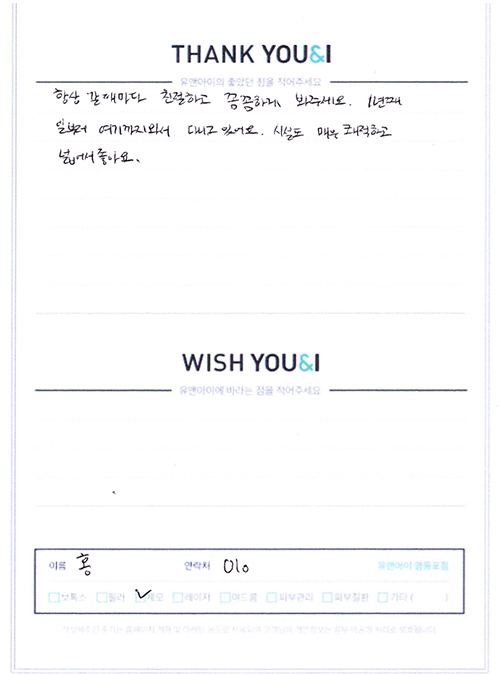 THANK YOU&I
유앤아이의 좋았던 점을 적어주세요
항상 갈때마다 친절하고 꼼꼼하게 봐주세요. 1년째
일부러 여기까지와서 다니고 있어요. 시설도 매우 쾌적하고
넓어서 좋아요.
WISH YOU&I
유앤아이에 바라는 점을 적어주세요
이름 홍 연락처 010 유앤아이 영등포점
보톡스 필러 제모 레이저 여드름 피부관리 피부질환 기타 ( )